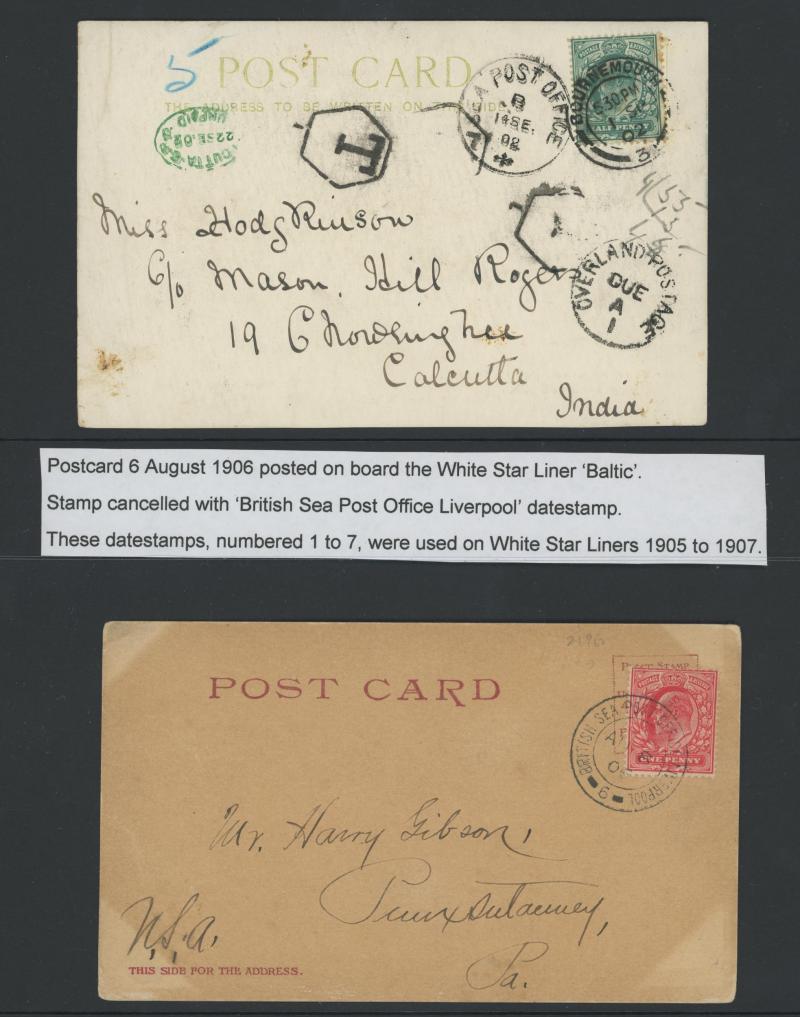 5
POST CARD
THE ADDRESS TO BE WRITTEN ON THIS SIDE
UNPAID
22 SE. 02
T
SEA POST OFFICE
B
14 SE.
02
BOURNEMOUTH
5.30 PM
HALFPENNY
Miss Hodgkinson
C/o Mason, Hill Rogers
19 Chowringhee
Calcutta
India
OVERLAND POSTAGE
DUE
A
1
Postcard 6 August 1906 posted on board the White Star Liner ‘Baltic’.
Stamp cancelled with ‘British Sea Post Office Liverpool’ datestamp.
These datestamps, numbered 1 to 7, were used on White Star Liners 1905 to 1907.
POST CARD
POSTAGE REVENUE
ONE PENNY
BRITISH SEA POST OFFICE LIVERPOOL
6
Mr. Harry Gibson,
Punxsutawney,
Pa.
U.S.A.
THIS SIDE FOR THE ADDRESS.